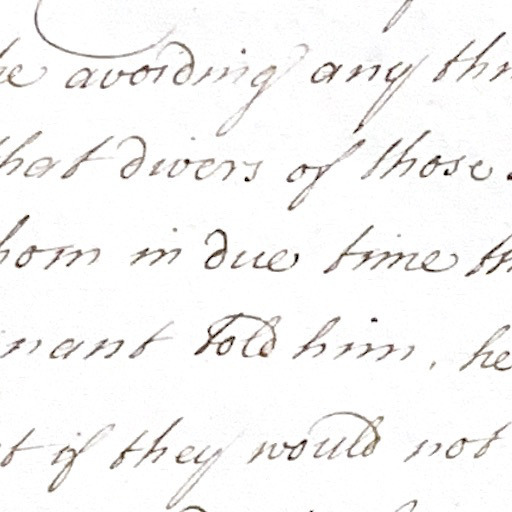 he avoiding any thr
that divers of those
hom in due time th
nant Told him, he
t if they would not